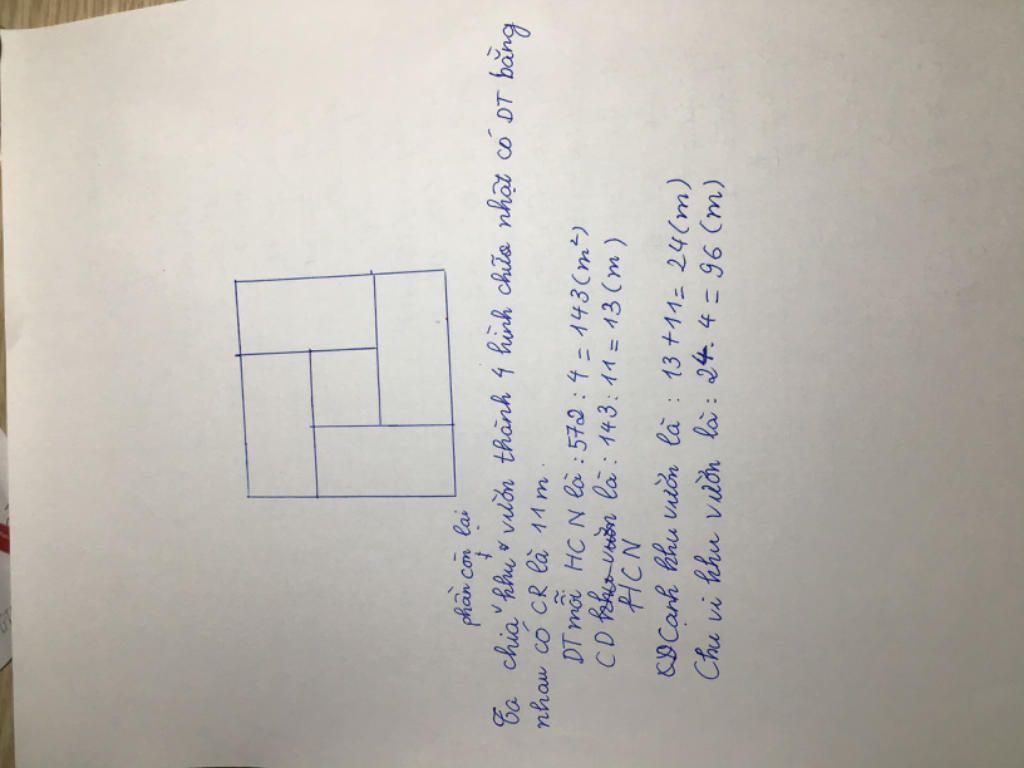 phần còn lại
Ta chia khu vườn thành 4 hình chữa nhật có DT bằng
nhau có CR là 11 m.
DT mỗi HCN là : 572 : 4 = 143 (m²)
CD khu vườn là : 143 : 11 = 13 (m)
HCN
CD Cạnh khu vườn là : 13 + 11 = 24 (m)
Chu vi khu vườn là : 24 . 4 = 96 (m)